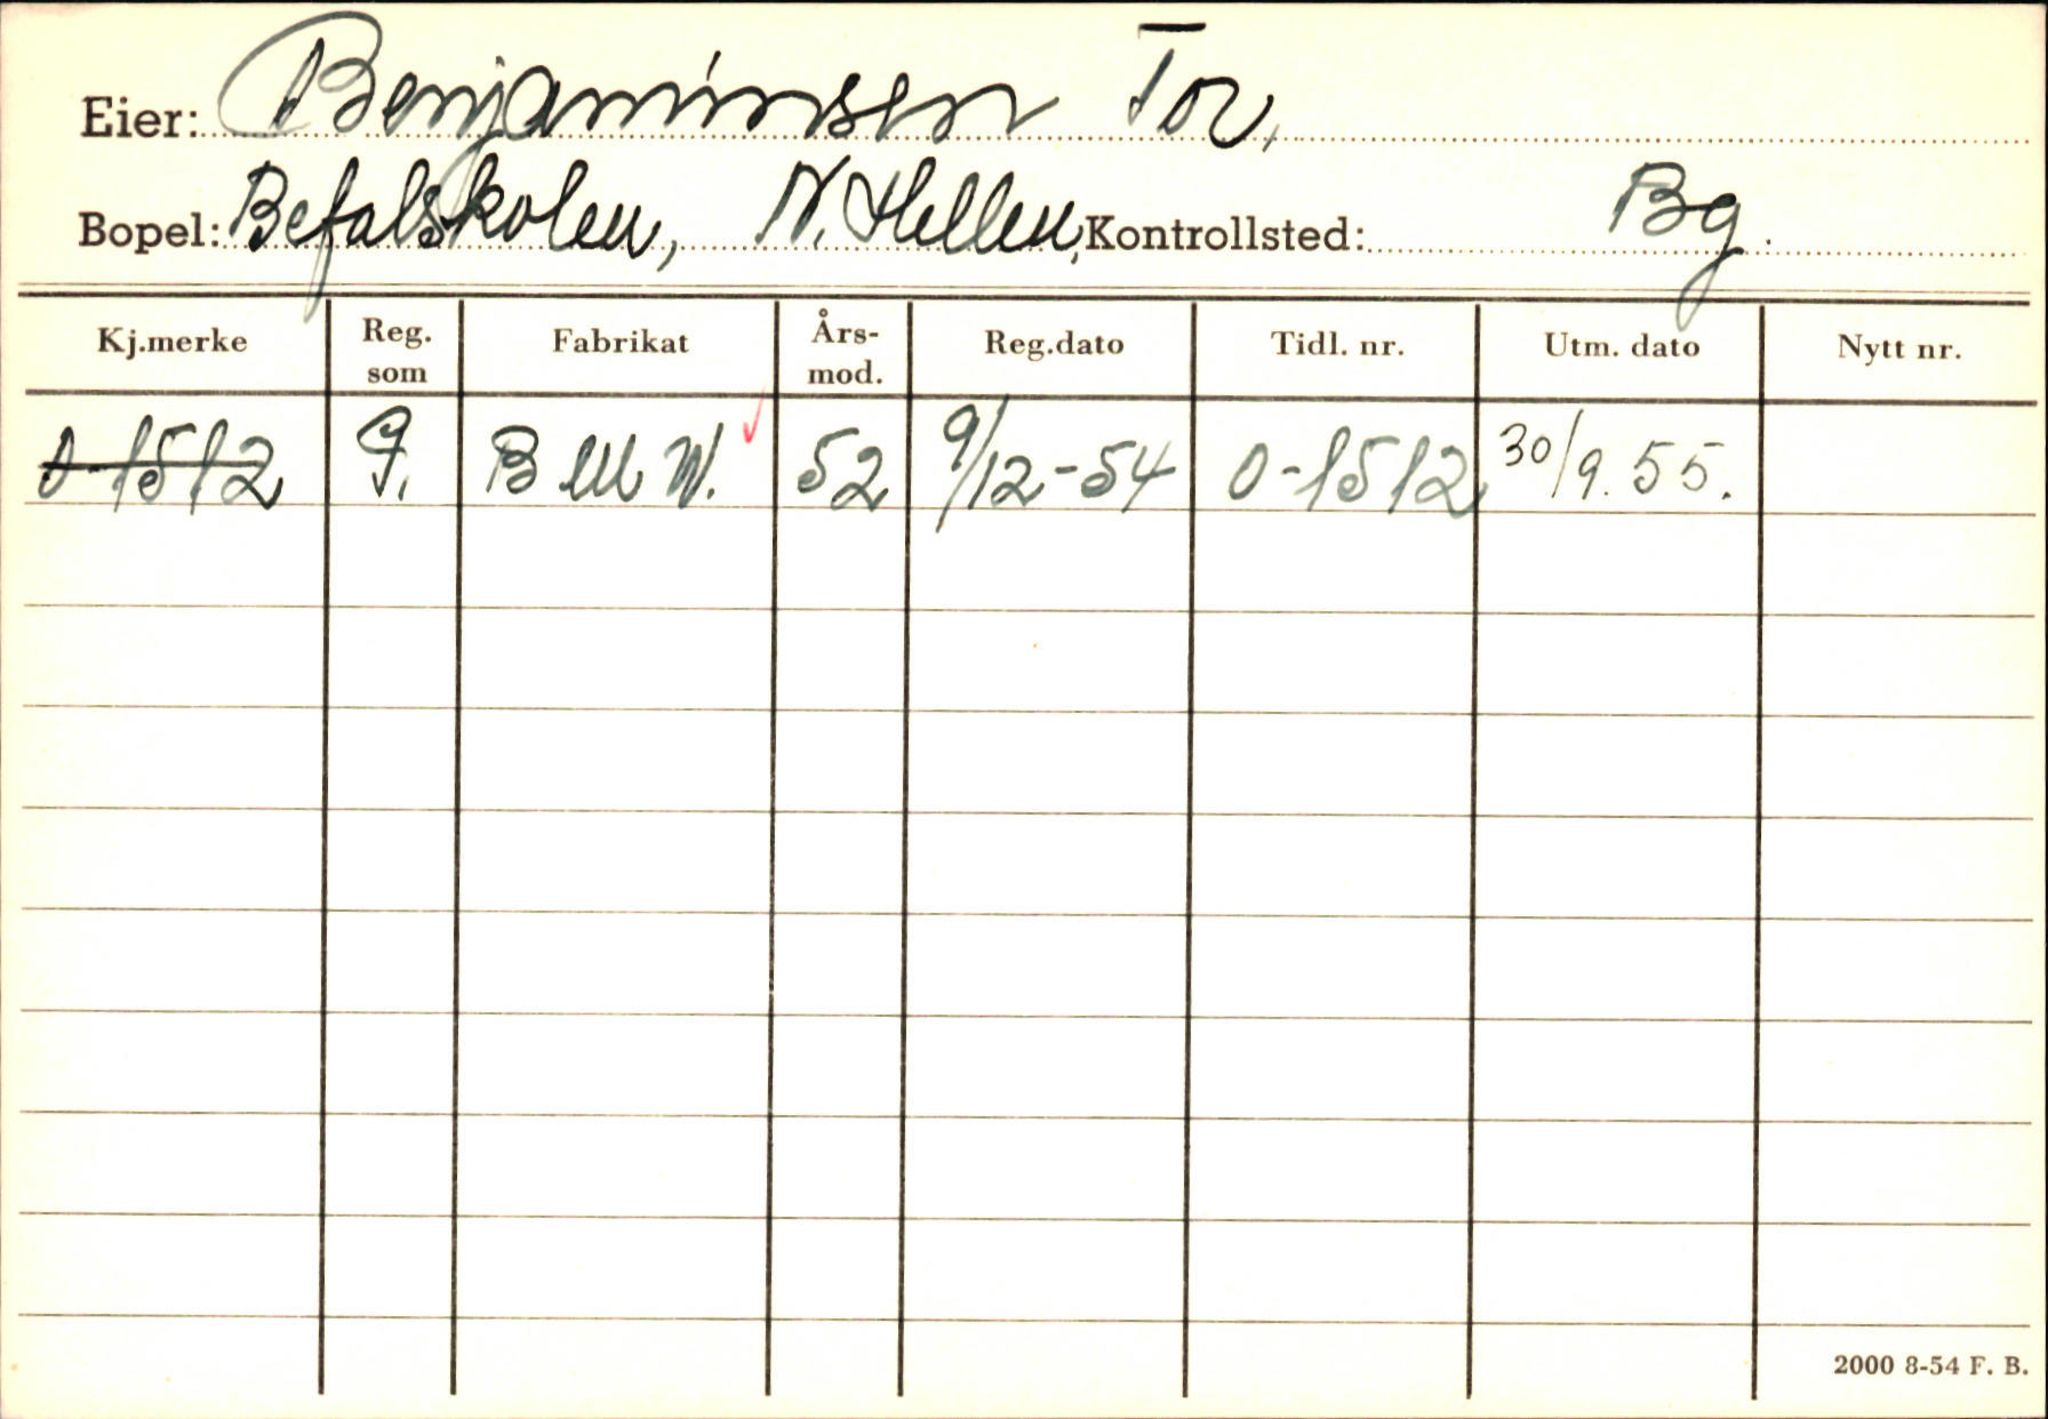 Eier: Benjaminsen Tor,
Bopel: Befalskolen, N. Hellen, Kontrollsted: Bg.
Kj.merke Reg. som Fabrikat Års-mod. Reg.dato Tidl. nr. Utm. dato Nytt nr.
O-1512 P. BMW. 52 9/12-54 O-1512 30/9.55.
2000 8-54 F. B.